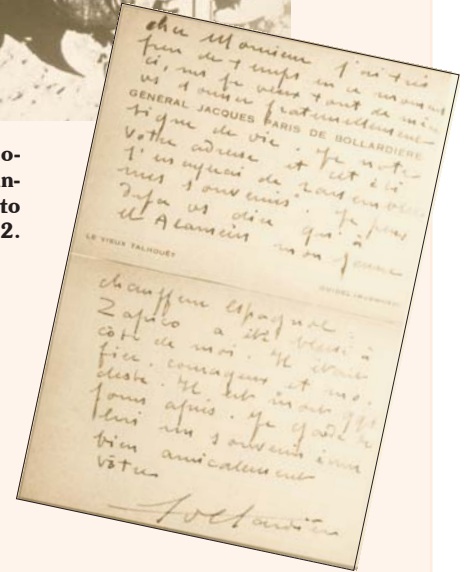 o-
in-
to
2.
cher Monsieur j'ai très
peu de temps en ce moment
ci, mais je veux tout de même
vs donner fraternellement
GÉNÉRAL JACQUES PARIS DE BOLLARDIÈRE
signe de vie. Je note
votre adresse et cet été
j'essayerai de rassembler
mes souvenirs. Je peux
déjà vs dire qu'à
el Alamein mon jeune
LE VIEUX TALHOUËT
GUIDEL (MORBIHAN)
chauffeur espagnol
Zapico a été blessé à
côté de moi. Il était
fier, courageux et mo-
deste. Il est mort qqs
jours après. Je garde de
lui un souvenir
bien amicalement
vôtre
Bollardière